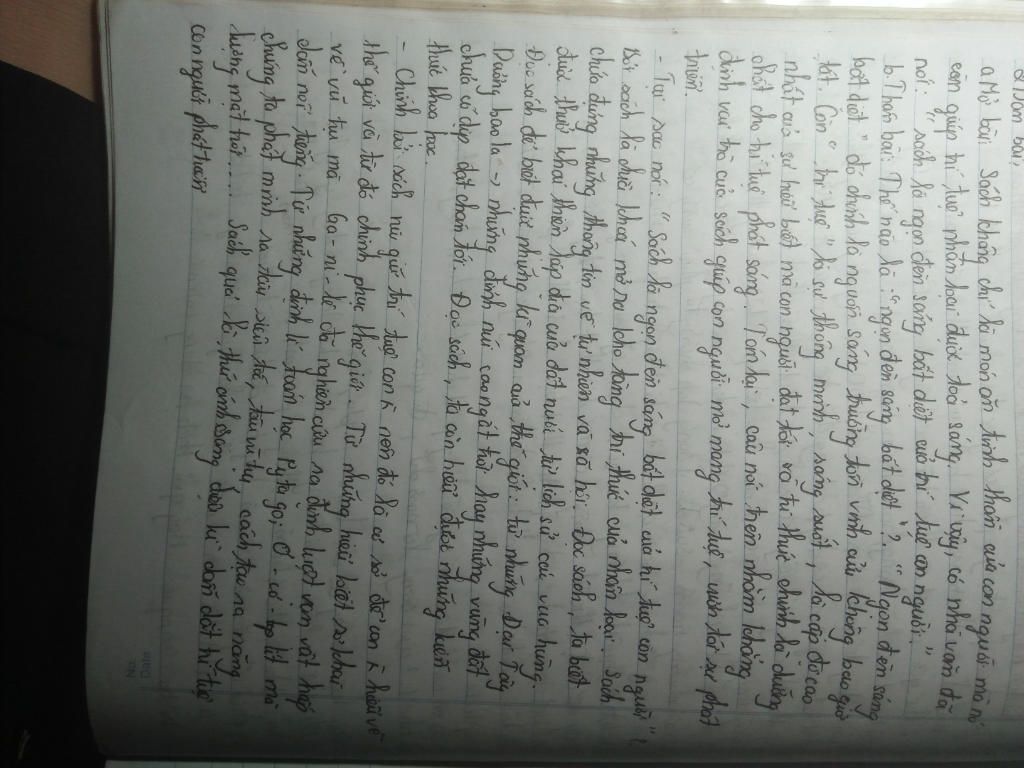 2) Dàn bài:
a) Mở bài: Sách không chỉ là món ăn tinh thần của con người mà nó
còn giúp trí tuệ nhân loại được toả sáng. Vì vậy, có nhà văn đã
nói: "sách là ngọn đèn sáng bất diệt của trí tuệ con người".
b. Thân bài: Thế nào là "ngọn đèn sáng bất diệt"? "Ngọn đèn sáng
bất diệt" đó chính là nguồn sáng trường tồn vĩnh cửu không bao giờ
tắt. Còn "trí tuệ" là sự thông minh, sáng suốt, là cấp độ cao
nhất của sự hiểu biết mà con người đạt tới và tri thức chính là dưỡng
chất cho trí tuệ phát sáng. Tóm lại, câu nói trên nhằm khẳng
định vai trò của sách giúp con người mở mang trí tuệ, vươn tới sự phát
triển.
- Tại sao nói: "Sách là ngọn đèn sáng bất diệt của trí tuệ con người"!
Bởi sách là chìa khoá mở ra kho tàng tri thức của nhân loại. Sách
chứa đựng những thông tin về tự nhiên và xã hội. Đọc sách, ta biết
được thuở khai thiên lập địa của đất nước từ lịch sử các vua hùng.
Đọc sách để biết được những kì quan của thế giới: từ những Đại Tây
Dương bao la -> những đỉnh núi cao ngất trời hay những vùng đất
chưa có dịp đặt chân tới. Đọc sách, ta còn hiểu được những kiến
thức khoa học.
- Chính bởi sách núi giữ trí tuệ con n nên đó là cơ sở để con n hiểu về
thế giới và từ đó chinh phục thế giới. Từ những hiểu biết sơ khai
về vũ trụ mà Ga-ni-lê đã nghiên cứu ra định luật vạn vật hấp
dẫn nổi tiếng. Từ những định lí toán học Pytago, Ơ-cơ-lit mà
chúng ta phát minh ra tàu siêu tốc, tàu vũ trụ, cách tạo ra năng
lượng mặt trời.... Sách quả là thứ ánh sáng diệu kì dẫn dắt trí tuệ
con người phát triển